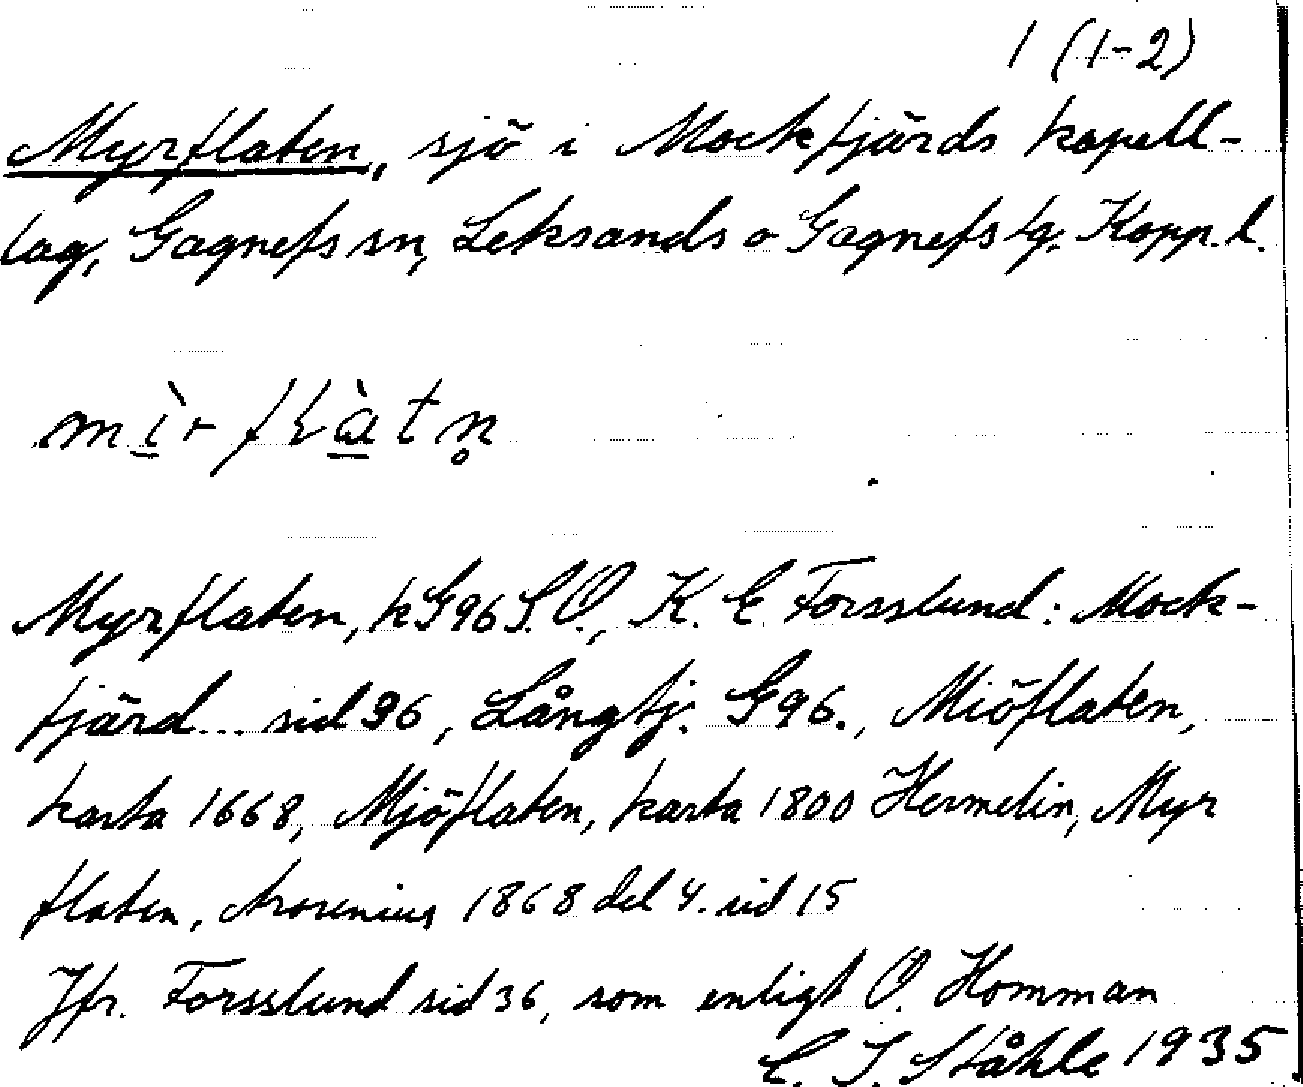 1 (1-2)
Myrflaten, sjö i Mockfjärds kapell-
lag, Gagnefs sn, Leksands o Gagnefs tg. Kopp. l.
mìrflàtn̥
Myrflaten, kG96 S.O., K. E Forsslund: Mock-
fjärd... sid 96, Långtj. G96., Miöflaten,
karta 1668, Mjöflaten, karta 1800 Hermelin, Myr
flaten, Arosenius 1868 del 4. sid 15
Jfr. Forsslund sid 36, som enligt O. Homman
C. I. Ståhle 1935